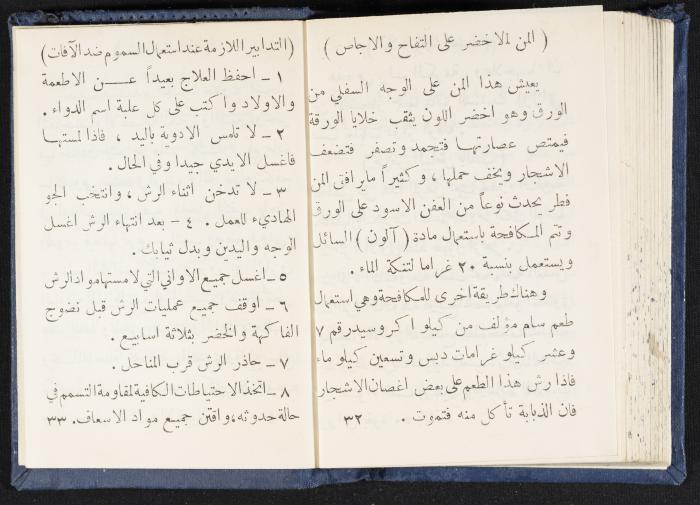 ( المن الاخضر على التفاح والاجاص )
يعيش هذا المن على الوجه السفلي من
الورق وهو اخضر اللون يثقب خلايا الورقة
فيمتص عصارتها فتجمد وتصفر فتضعف
الاشجار ويخف حملها ، وكثيراً مايرافق المن
فطر يحدث نوعاً من العفن الاسود على الورق
وتتم المكافحة باستعمال مادة ( آلون ) السائل
ويستعمل بنسبة ٢٠ غراما لتنكة الماء .
وهناك طريقة اخرى للمكافحة وهي استعمال
طعم سام مؤلف من كيلو اكروسيد رقم ٧
وعشر كيلو غرامات دبس وتسعين كيلو ماء
فاذا رش هذا الطعم على بعض اغصان الاشجار
فان الذبابة تأكل منه فتموت . ٣٢
( التدابير اللازمة عند استعمال السموم ضد الآفات )
١ ـ احفظ العلاج بعيداً عن الاطعمة
والاولاد واكتب على كل علبة اسم الدواء .
٢ ـ لا تلمس الادوية باليد ، فاذا لمستها
فاغسل الايدي جيدا وفي الحال .
٣ ـ لا تدخن أثناء الرش ، وانتخب الجو
الهاديء للعمل . ٤ ـ بعد انتهاء الرش اغسل
الوجه واليدين وبدل ثيابك .
٥ ـ اغسل جميع الاواني التي لامستها مواد الرش
٦ ـ اوقف جميع عمليات الرش قبل نضوج
الفاكهة والخضر بثلاثة اسابيع .
٧ ـ حاذر الرش قرب المناحل .
٨ ـ اتخذ الاحتياطات الكافية لمقاومة التسمم في
حالة حدوثه، واقتن جميع مواد الاسعاف. ٣٣